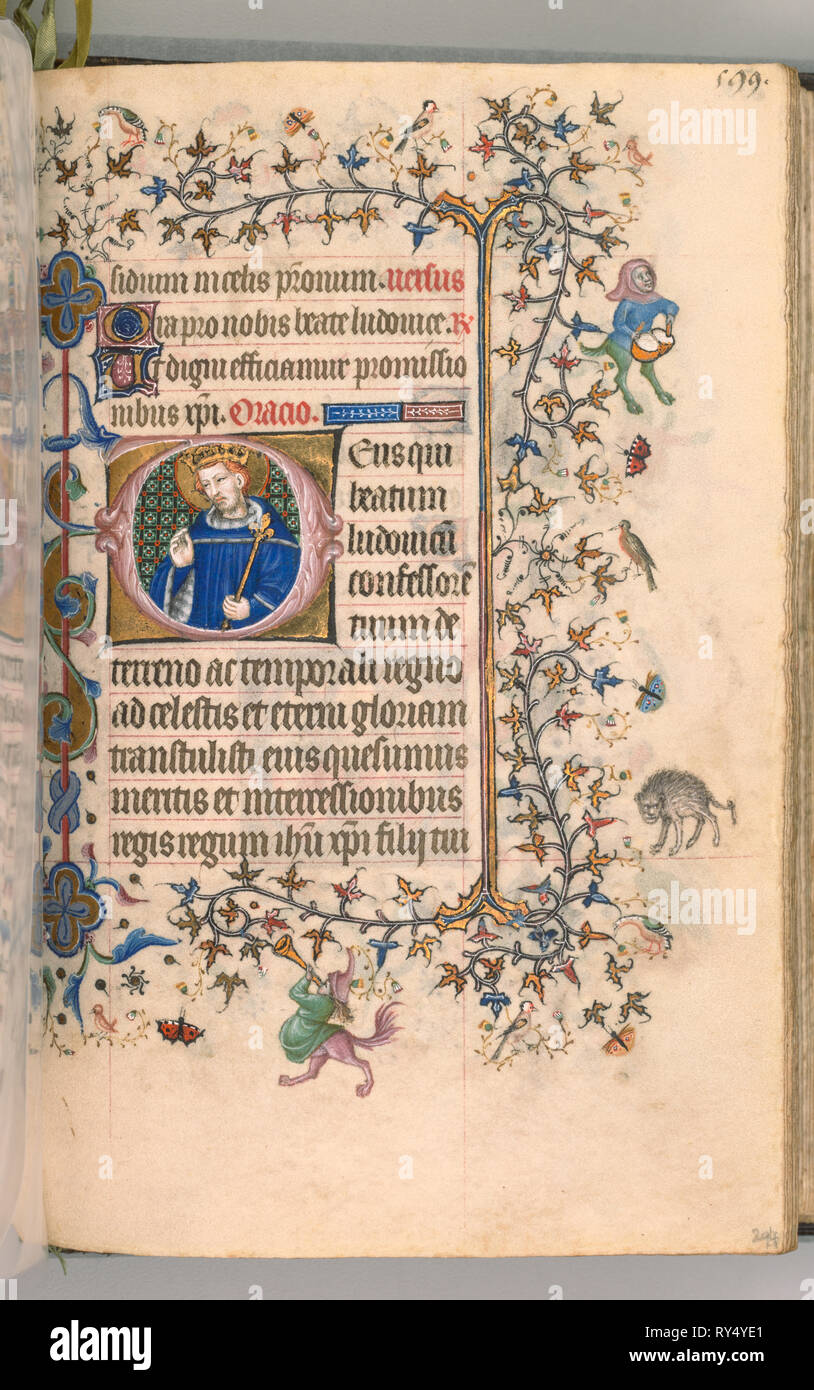 599.
sidium in celis pronum. Uersus
Ora pro nobis beate ludovice. R
Ut digni efficiamur promissio
nibus xpi. Oracio.
Deus qui
beatum
ludovicū
confessorē
tuum de
terreno ac temporali regno
ad celestis et eterni gloriam
transtulisti eius quesumus
meritis et intercessionibus
regis regum ihū xpi filij tui
294
a
alamy
alamy
Image ID: RY4YE1
www.alamy.com